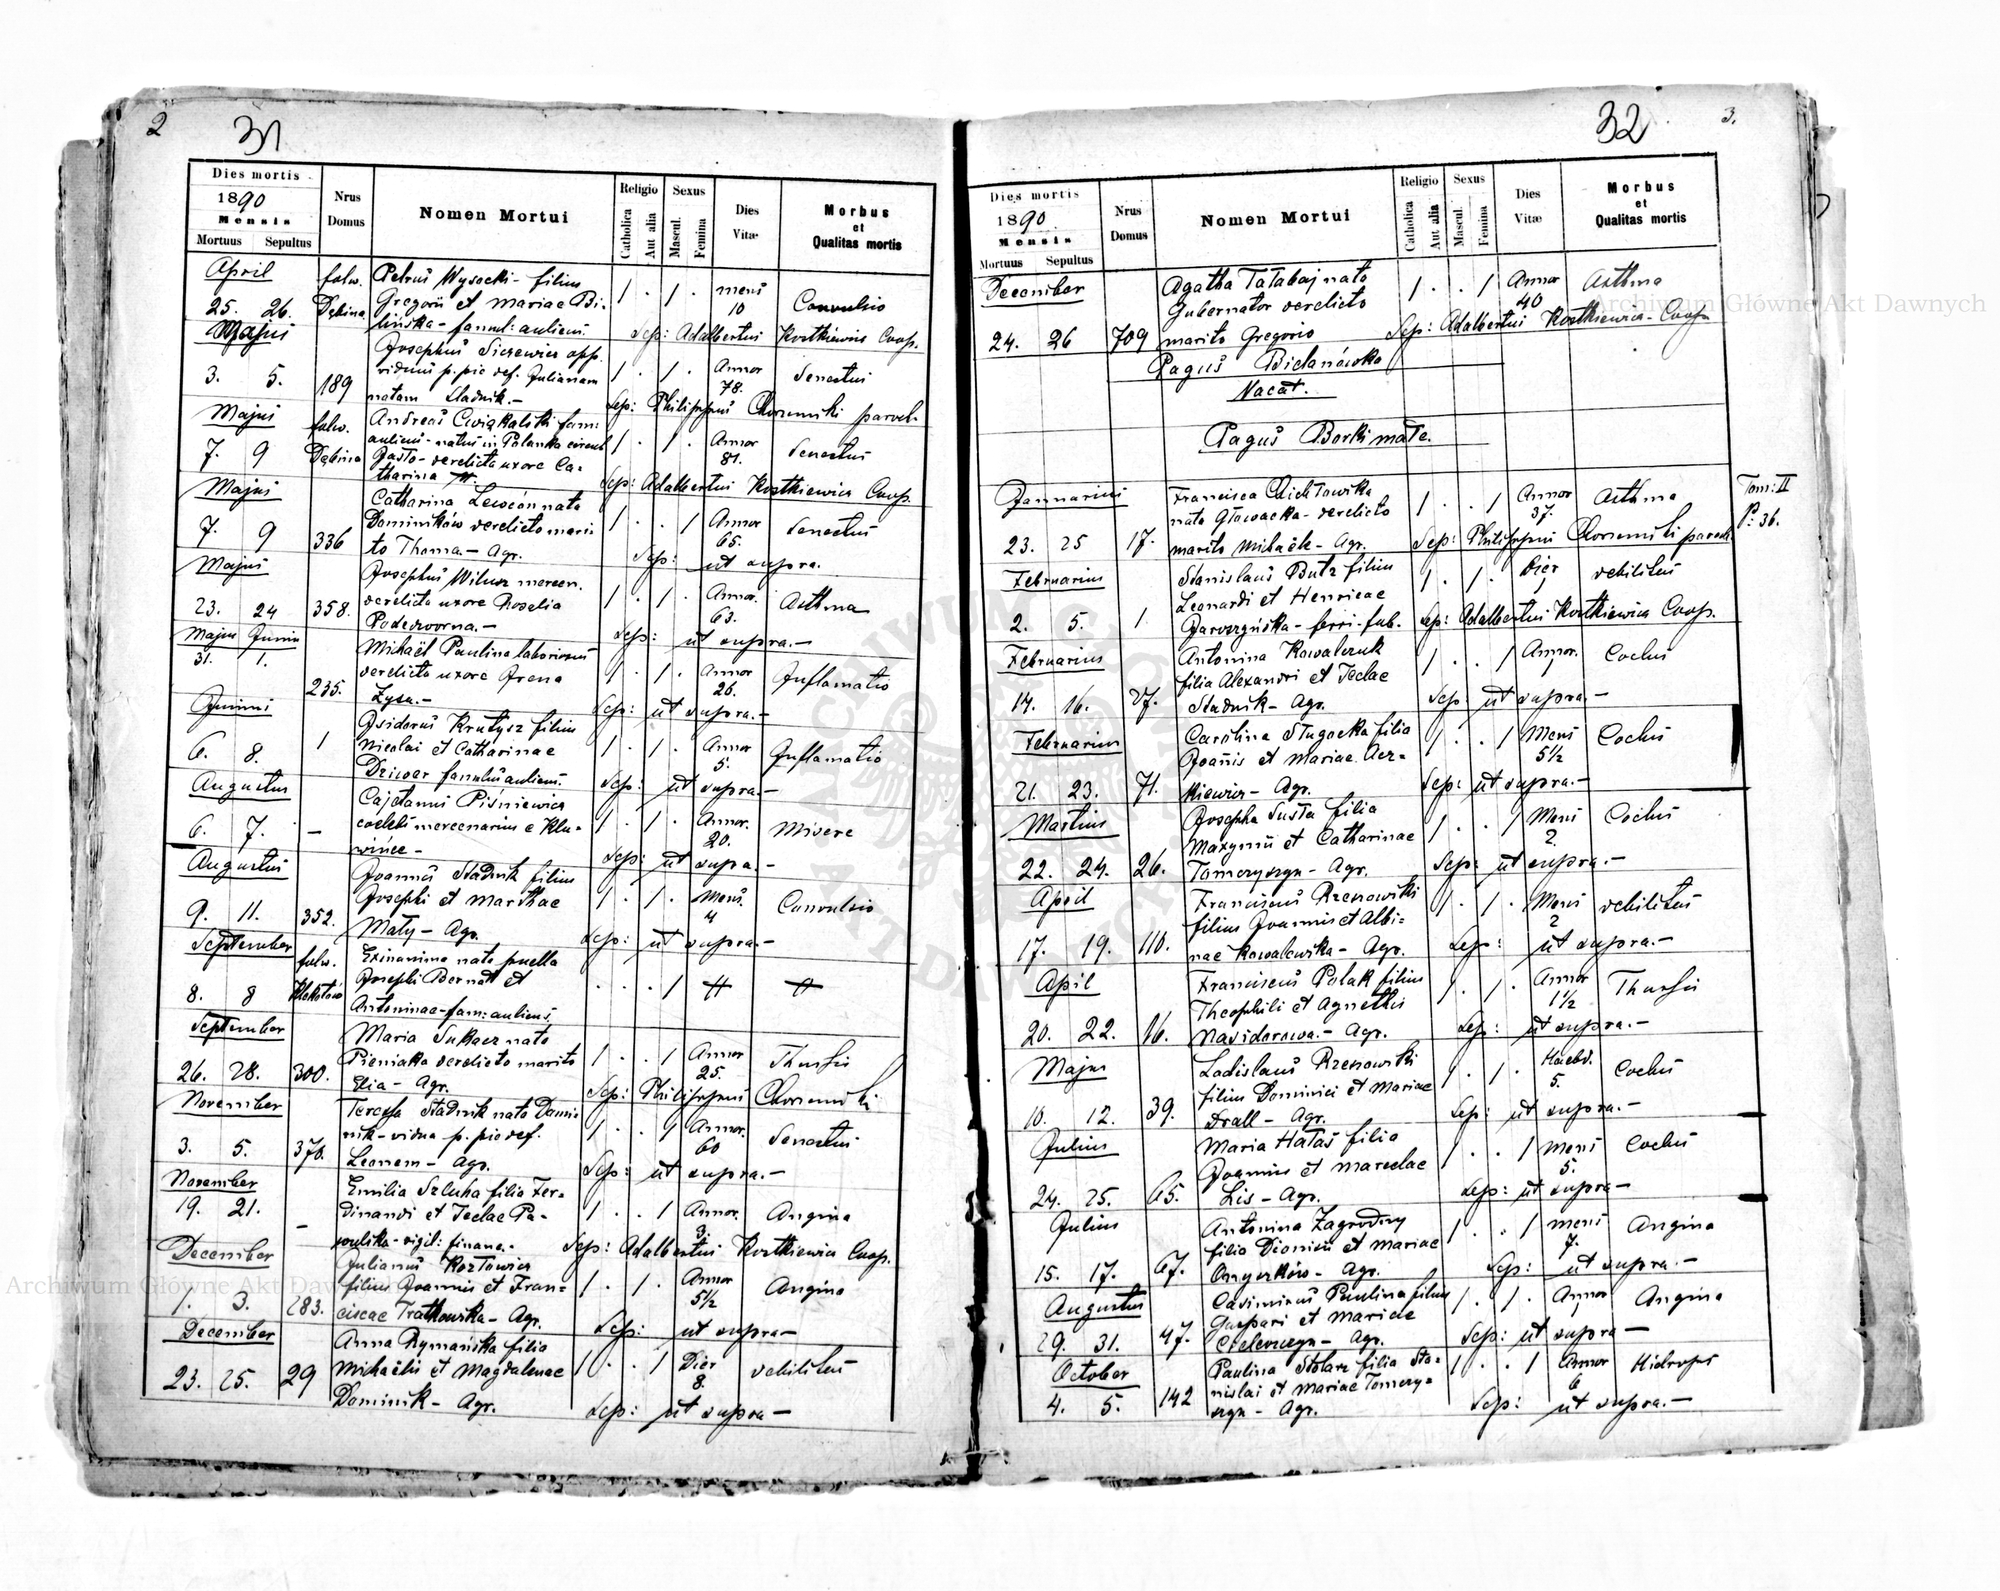 2
31
Dies mortis
1890
Mensis
Mortuus Sepultus
Nrus Domus
Nomen Mortui
Religio
Catholica
Aut alia
Sexus
Mascul.
Femina
Dies Vitæ
Morbus
et
Qualitas mortis
April
25. 26.
folw.
Dębina
Petrus Wysocki filius
Gregorii et Mariae Bi-
lińska - famul: aulicus.
1 . 1 .
mens
10
Convulsio
Sep: Adalbertus Kostkiewicz Coop.
Majus
3. 5. 189
Josephus Siczewicz opp.
viduus p. pie def. Julianam
natam Sladnik.-
1 . 1 .
Annor
78.
Senectus
Sep: Philippus paroch.
Majus
7. 9
folw.
Dębina
Andreas fam:
aulicus - natus in Polanka circul
Jasło - derelicta uxore Ca-
tharina
1 . 1 .
Annor
81.
Senectus
Sep: Adalbertus Kostkiewicz Coop
Majus
7. 9 336
Catharina Lewcón nata
Dominików derelicto mari
to Thoma - Agr.
1 . . 1
Annor
65.
Senectus
Sep: ut supra.
Majus
23. 24 358.
Josephus Wilusz mercen.
derelicta uxore Rosalia
Podedworna.-
1 . 1 .
Annor.
63.
Asthma
Sep: ut supra.-
Majus Junius
31. 1.
235.
Michaël Paulina laboriosus
derelicta uxore Irena
Zysa.-
1 . 1 .
Annor
26.
Inflamatio
Sep: ut supra.-
Junius
6. 8. 1
Isidorus Krutysz filius
Nicolai et Catharinae
Dziwar famulus aulicus.
1 . 1 .
Annor
5.
Inflamatio
Sep: ut supra.-
Augustus
6. 7. -
Cajetanus Piśniewicz
coelebs mercenarius e Klu-
wince -
1 . 1 .
Annor.
20.
Misere
Sep: ut supra.-
Augustus
9. 11. 352.
Joannes Stadnik filius
Josephi et Marthae
Maty - Agr.
1 . 1 .
Mens.
4
Convulsio
Sep: ut supra.-
September
8. 8
folw.
Klekotów
Exinanima nata puella
Josephi Bernatt et
Antoninae - fam: aulicus.
. . . 1
September
26. 28. 300.
Maria Sukacz nata
Pieniaka derelicto marito
Elia - Agr.
1 . . 1
Annor
25.
Thussis
Sep: Philippus
November
3. 5. 370.
Teressa Stadnik nata Domi
nik - vidua p. pie def.
Leonem - Agr.
1 . . 1
Annor.
60
Senectus
Sep: ut supra.-
November
19. 21. -
Emilia Szluha filia Fer-
dinandi et Teclae Pa-
wulska - vigil: financ.-
1 . . 1
Annor.
3.
Angina
Sep: Adalbertus Kostkiewicz Coop.
December
1. 3. 283.
Julianus Kozłowicz
filius Joannis et Fran-
ciscae Tratkowska - Agr.
1 . 1 .
Annor
5½
Angina
Sep: ut supra-
December
23. 25. 29
Anna Rymańska filia
Michaëlis et Magdalenae
Dominik - Agr.
1 . . 1
Dier
8.
debilitas
Sep: ut supra -
32
3.
Dies mortis
1890.
Mensis
Mortuus Sepultus
Nrus Domus
Nomen Mortui
Religio
Catholica
Aut alia
Sexus
Mascul.
Femina
Dies Vitæ
Morbus
et
Qualitas mortis
December
24. 26 709
Agatha Tatabaj nata
Gubernator derelicto
marito Gregorio
1 . . 1
Annor
40
Asthma
Sep: Adalbertus Kostkiewicz - Coop
Pagus Bielanówka
Vacat.
Pagus Borki małe.
Tom: II
P: 36.
Januarius
23. 25 17.
Francisca
nata Głowacka - derelicto
marito Michaële - Agr.
1 . . 1
Annor
37.
Asthma
Sep: Philippus paroch
Februarius
2. 5. 1.
Stanislaus Butz filius
Leonardi et Henricae
ferri - fab.
1 . 1 .
Dier
1
debilitas
Sep: Adalbertus Kostkiewicz Coop.
Februarius
14. 16. 27.
Antonina Kowalczuk
filia Alexandri et Teclae
Stadnik - Agr.
1 . . 1
Annor.
1
Coclus
Sep: ut supra.-
Februarius
21. 23. 71.
Carolina Sługocka filia
Joannis et Mariae Acz-
kiewicz - Agr.
1 . . 1
Mens
5½
Coclus
Sep: ut supra.-
Martius
22. 24. 26.
Josepha Susła filia
Maxymii et Catharinae
Tomczyszyn - Agr.
1 . . 1
Mens
2.
Coclus
Sep: ut supra.-
April
17. 19. 110.
Franciscus Rzenowski
filius Joannis et Albi-
nae Kowalewska - Agr.
1 . 1 .
Mens
2
debilitas
Sep: ut supra.-
April
20. 22. 16.
Franciscus Polak filius
Theophili et Agnethis
Nasidorowa.- Agr.
1 . 1 .
Annor
1½
Thussis
Sep: ut supra.-
Majus
10. 12. 39.
Ladislaus Rzenowski
filius Dominici et Mariae
Drall - Agr.
1 . 1 .
Haebd.
5.
Coclus
Sep: ut supra.-
Julius
24. 25. 65.
Maria Hałas filia
Joannis et Marcelae
Lis - Agr.
1 . . 1
Mens
5.
Coclus
Sep: ut supra-
Julius
15. 17. 67.
Antonina Zagrodny
filia Dionisii et Mariae
Onyszków - Agr.
1 . . 1
Mens
7.
Angina
Sep: ut supra.-
Augustus
29. 31. 47.
Casimirus Paulina filius
Gaspari et Mariae
Agr.
1 . 1 .
Annor
1
Angina
Sep: ut supra-
October
4. 5. 142
Paulina Stolarz filia Sta-
nislai et Mariae Tomczy-
szyn - Agr.
1 . . 1
Annor
6
Hidrops
Sep: ut supra.-
Archiwum Główne Akt Dawnych
Archiwum Główne Akt Dawnych